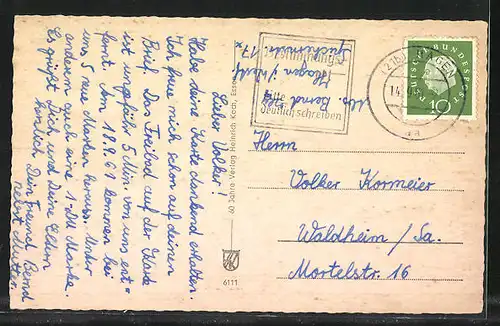 Lieber Volker!
Habe deine Karte dankend erhalten.
Ich freue mich schon auf deinen
Brief. Das Freibad auf der Karte
ist ungefähr 5 Min von uns ent=
fernt. Am 18.9.61 kommen bei
uns 5 neue Marken heraus. Unter
anderem auch eine 1-DM Marke.
Es grüßt Dich und Deine Eltern
herzlich Dein Freund Bernd
nebst Mutter.
60 Jahre Verlag Heinrich Koch, Essen
6111
Bestimmungs
Bitte
deutlich schreiben
Abs. Bernd
Hagen i/Westf.
17a
(21b) HAGEN
14.
DEUTSCHE BUNDESPOST
10
Herrn
Volker Kormeier
Waldheim/Sa.
Mortelstr. 16